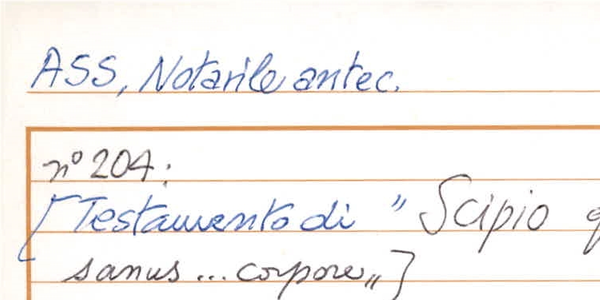 ASS, Notarile antec.
n° 204:
[Testamento di " Scipio
sanus ... corpore„]